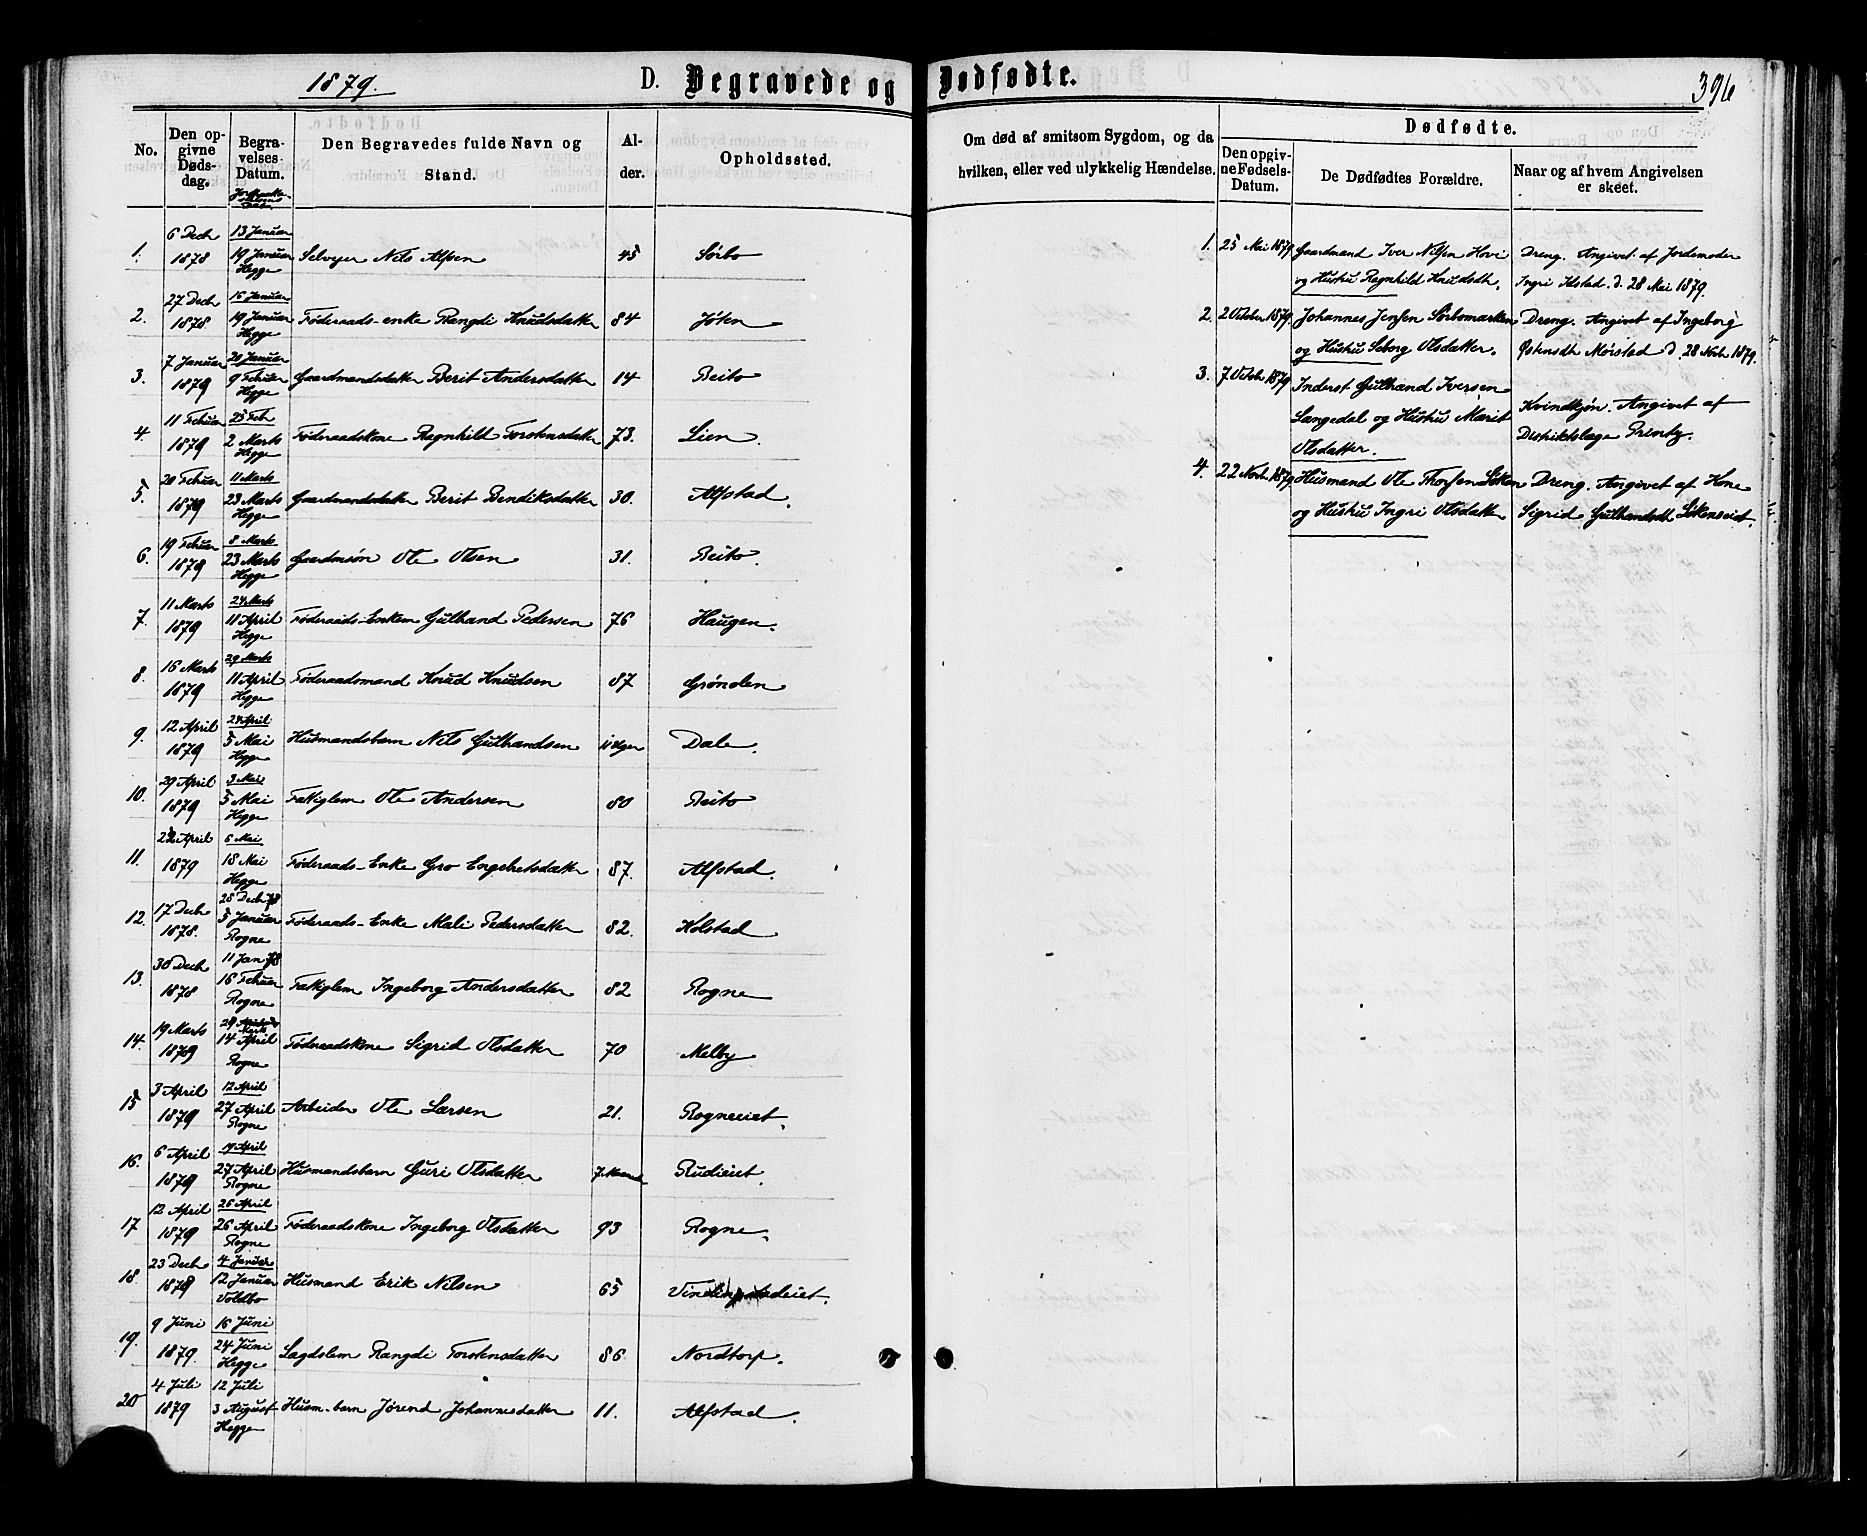 1879.
D. Begravede og Dødfødte.
396
No.
Den opgivne Dødsdag.
Begravelses-Datum.
Den Begravedes fulde Navn og Stand.
Alder.
Opholdssted.
Om død af smitsom Sygdom, og da hvilken, eller ved ulykkelig Hændelse.
Dødfødte.
Den opgivne Fødsels-Datum.
De Dødfødtes Forældre.
Naar og af hvem Angivelsen er skeet.
1. 6 Decb 1878 13 Januar 19 Januar Hegge Selveier Nils Alfsen 45 Sørbo
2. 27 Decb 1878 16 Januar 19 Januar Hegge Føderaads-enke Rangdi Knudsdatter 84 Jøten
3. 7 Januar 1879 20 Januar 9 Februar Hegge Gaardmandsdatter Berit Andersdatter 14 Beito
4. 11 Februar 1879 25 Feb 2 Marts Hegge Føderaadskone Ragnhild Torstensdatter 73. Lien.
5. 20 Februar 1879 11 Marts 23 Marts Hegge Gaardmandsdatter Berit Bendiksdatter 30. Alfstad.
6. 19 Februar 1879 8 Marts 23 Marts Hegge Gaardmsøn Ole Olsen 31. Beito.
7. 11 Marts 1879 24 Marts 11 April Hegge Føderaads-Enkem Gulbrand Pedersen 76 Haugen.
8. 16 Marts 1879 29 Marts 11 April Hegge Føderaadsmand Knud Knudsen 87 Grønolen
9. 12 April 1879 24 April 5 Mai Hegge Husmandsbarn Nils Gulbrandsen Uger Dale.
10. 29 April 1879 3 Mai 5 Mai Hegge Fattiglem Ole Andersen 80 Beito
11. April 1879 6 Mai 18 Mai Hegge Føderaads-Enke Gro Engebretsdatter 87. Alfstad.
12. 17 Decb 1878. 28 Decb 78 5 Januar Rogne Føderaads-Enke Mali Pedersdatter 82. Kolstad
13. 30 Decb 1878 11 Jan 16 Februar Rogne Fattiglem Ingeborg Andersdatter 82 Rogne
14. 19 Marts 1879 29 Marts 14 April Rogne Føderaadskone Sigrid Olsdatter 70 Melby
15 3 April 1879 12 April 27 April Rogne Arbeider Ole Larsen 21. Rogneeiet.
16. 6 April 1879 19 April 27 April Rogne Husmandsbarn Guri Olsdatter 7 Maaned Rudieiet.
17 12 April 1879 26 April 26 April Rogne Føderaadskone Ingeborg Olsdatter 93 Rogne.
18 23 Decb 1878 4 Januar 12 Januar Voldbo Husmand Erik Nilsen 65
19. 9 Juni 1879. 16 Juni 24 Juni Hegge Lægdslem Rangdi Torstensdatter 86 Nordtorp.
20 4 Juli 1879 12 Juli 3 August Hegge Husm-barn Jørend Johannesdatter 11. Alfstad.
1. 25 Mai 1879 Gaardmand Iver Nilsen Hovi Dreng. Angivet af Jordemoder
og Hustru Ragnhild Knudsdtr. Ingri Idstad. d. 28 Mai 1879.
2. 2 October 1879. Johannes Jensen Sørbomarken Dreng. Angivet af Ingeborg
og Hustru Seborg Olsdatter. Østensdtr Mørstad d. 28 Novb. 1879.
3. 7 Octobr 1879 Inderst Gulbrand Iversen
Langedal og Hustru Marit Kvindkjøn. Angivet af
Olsdatter. Distriktslæge Printz.
4. 22 Novbr. 1879 Husmand Ole Thorsen Løken Dreng. Angivet af Kone
og Hustru Ingri Olsdatter Sigrid Gulbrandsdtr Løkenseiet.